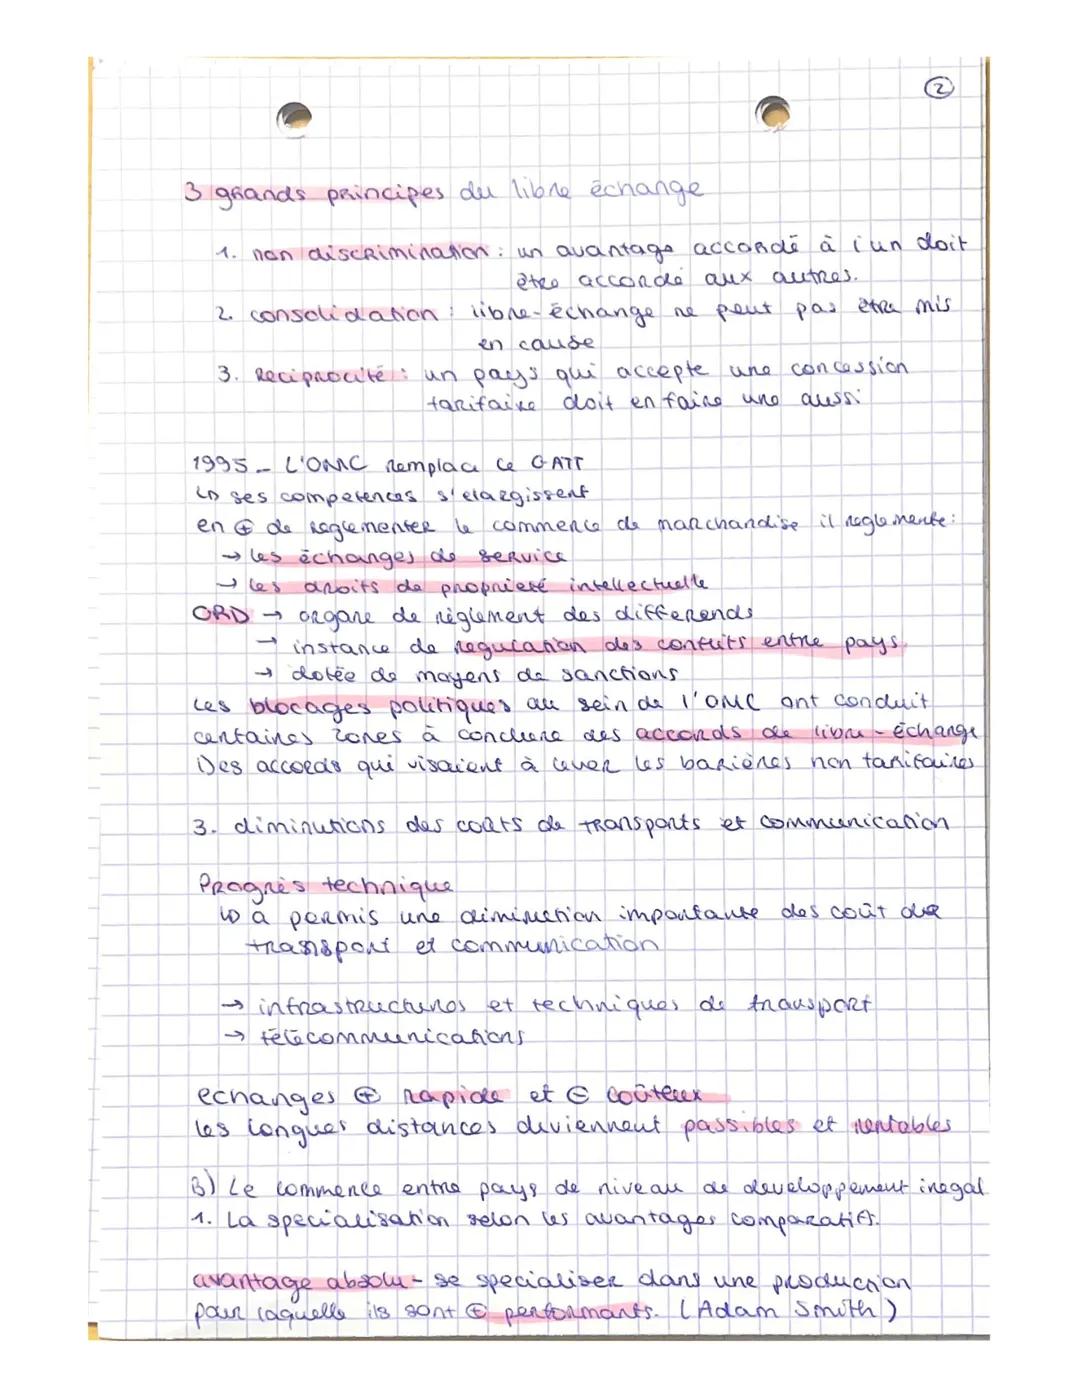 2
3 grands principes du libre échange
1. non discrimination : un avantage accordé à l'un doit
être accordé aux autres.
2. consolidation : libre-échange ne peut pas être mis
en cause
3. Reciprocité : un pays qui accepte une concession
tarifaire doit en faire une aussi
1995 - L'OMC remplace le GATT
↳ ses competences s'elargissent
en ⊕ de reglementer le commerce de marchandise il reglemente :
→ les échanges de service
→ les droits de propriété intellectuelle
ORD → organe de règlement des differends
→ instance de regulation des conflits entre pays
→ dotée de moyens de sanctions
Les blocages politiques au sein de l'OMC ont conduit
certaines zones à conclure des accords de libre-échange
Des accords qui visaient à lever les barières non tarifaires
3. diminutions des coûts de transports et communication
Progrès technique
↳ a permis une diminution importante des coût de
transport et communication
→ infrastructures et techniques de transport
→ télécommunications
echanges ⊕ rapide et ⊖ coûteux
les longues distances deviennent possibles et rentables
B) Le commerce entre pays de niveau de developpement inegal
1. La specialisation selon les avantages comparatifs.
avantage absolu - se specialiser dans une production
pour laquelle ils sont ⊕ performants. (Adam Smith)